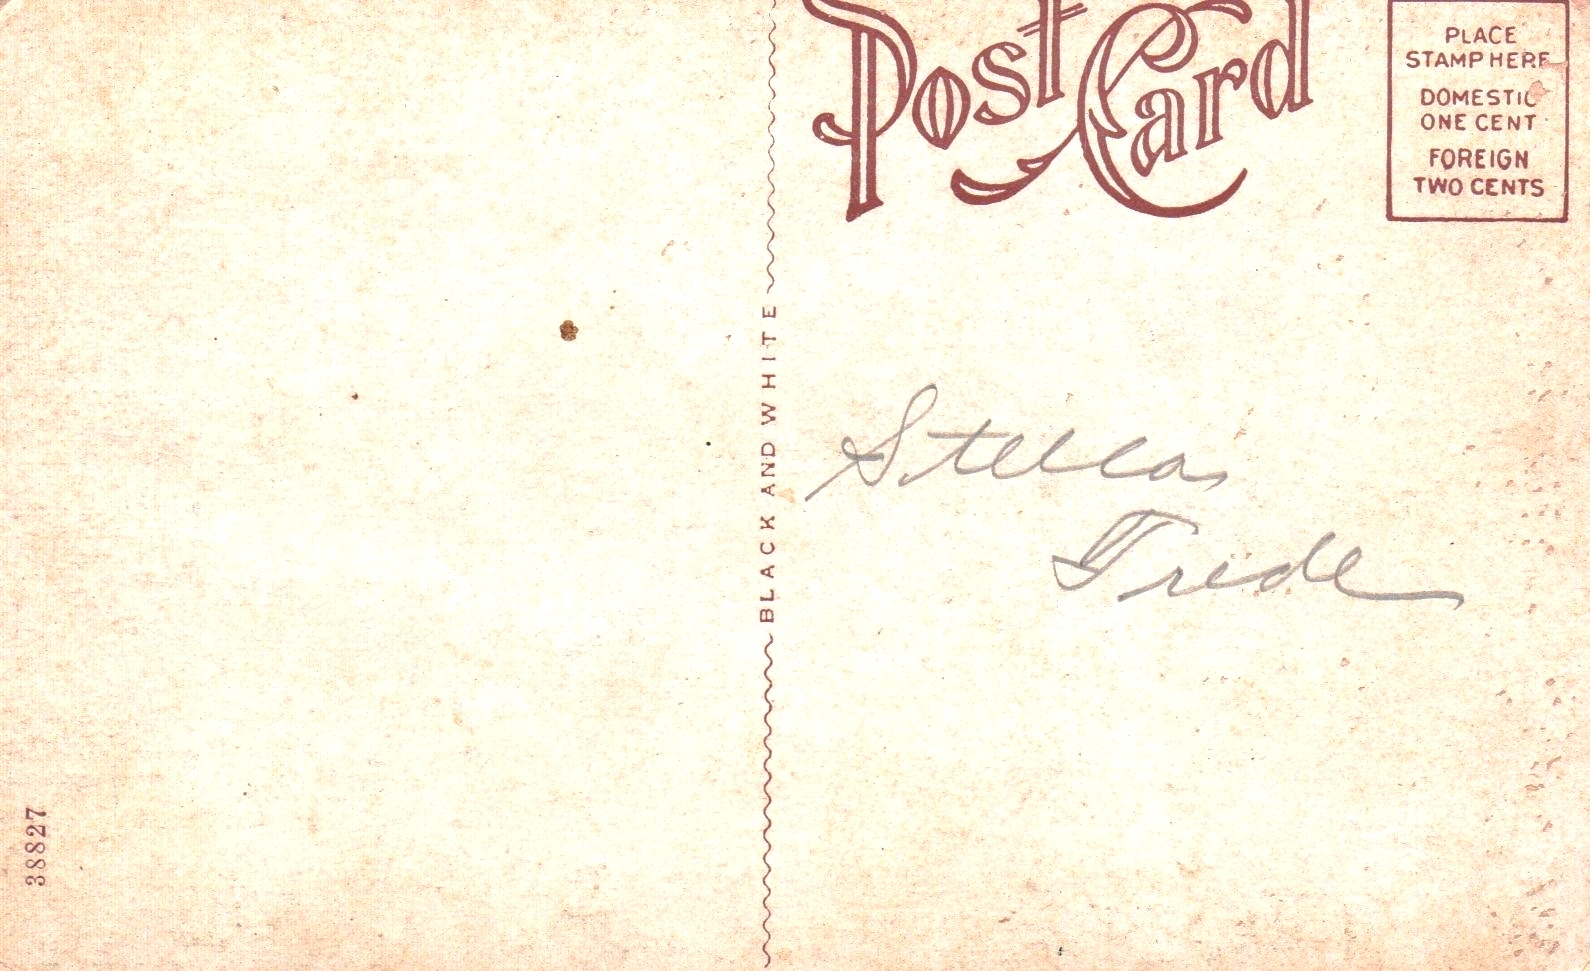 Post Card
PLACE
STAMP HERE
DOMESTIC
ONE CENT
FOREIGN
TWO CENTS
BLACK AND WHITE
Stella
Trede
38827